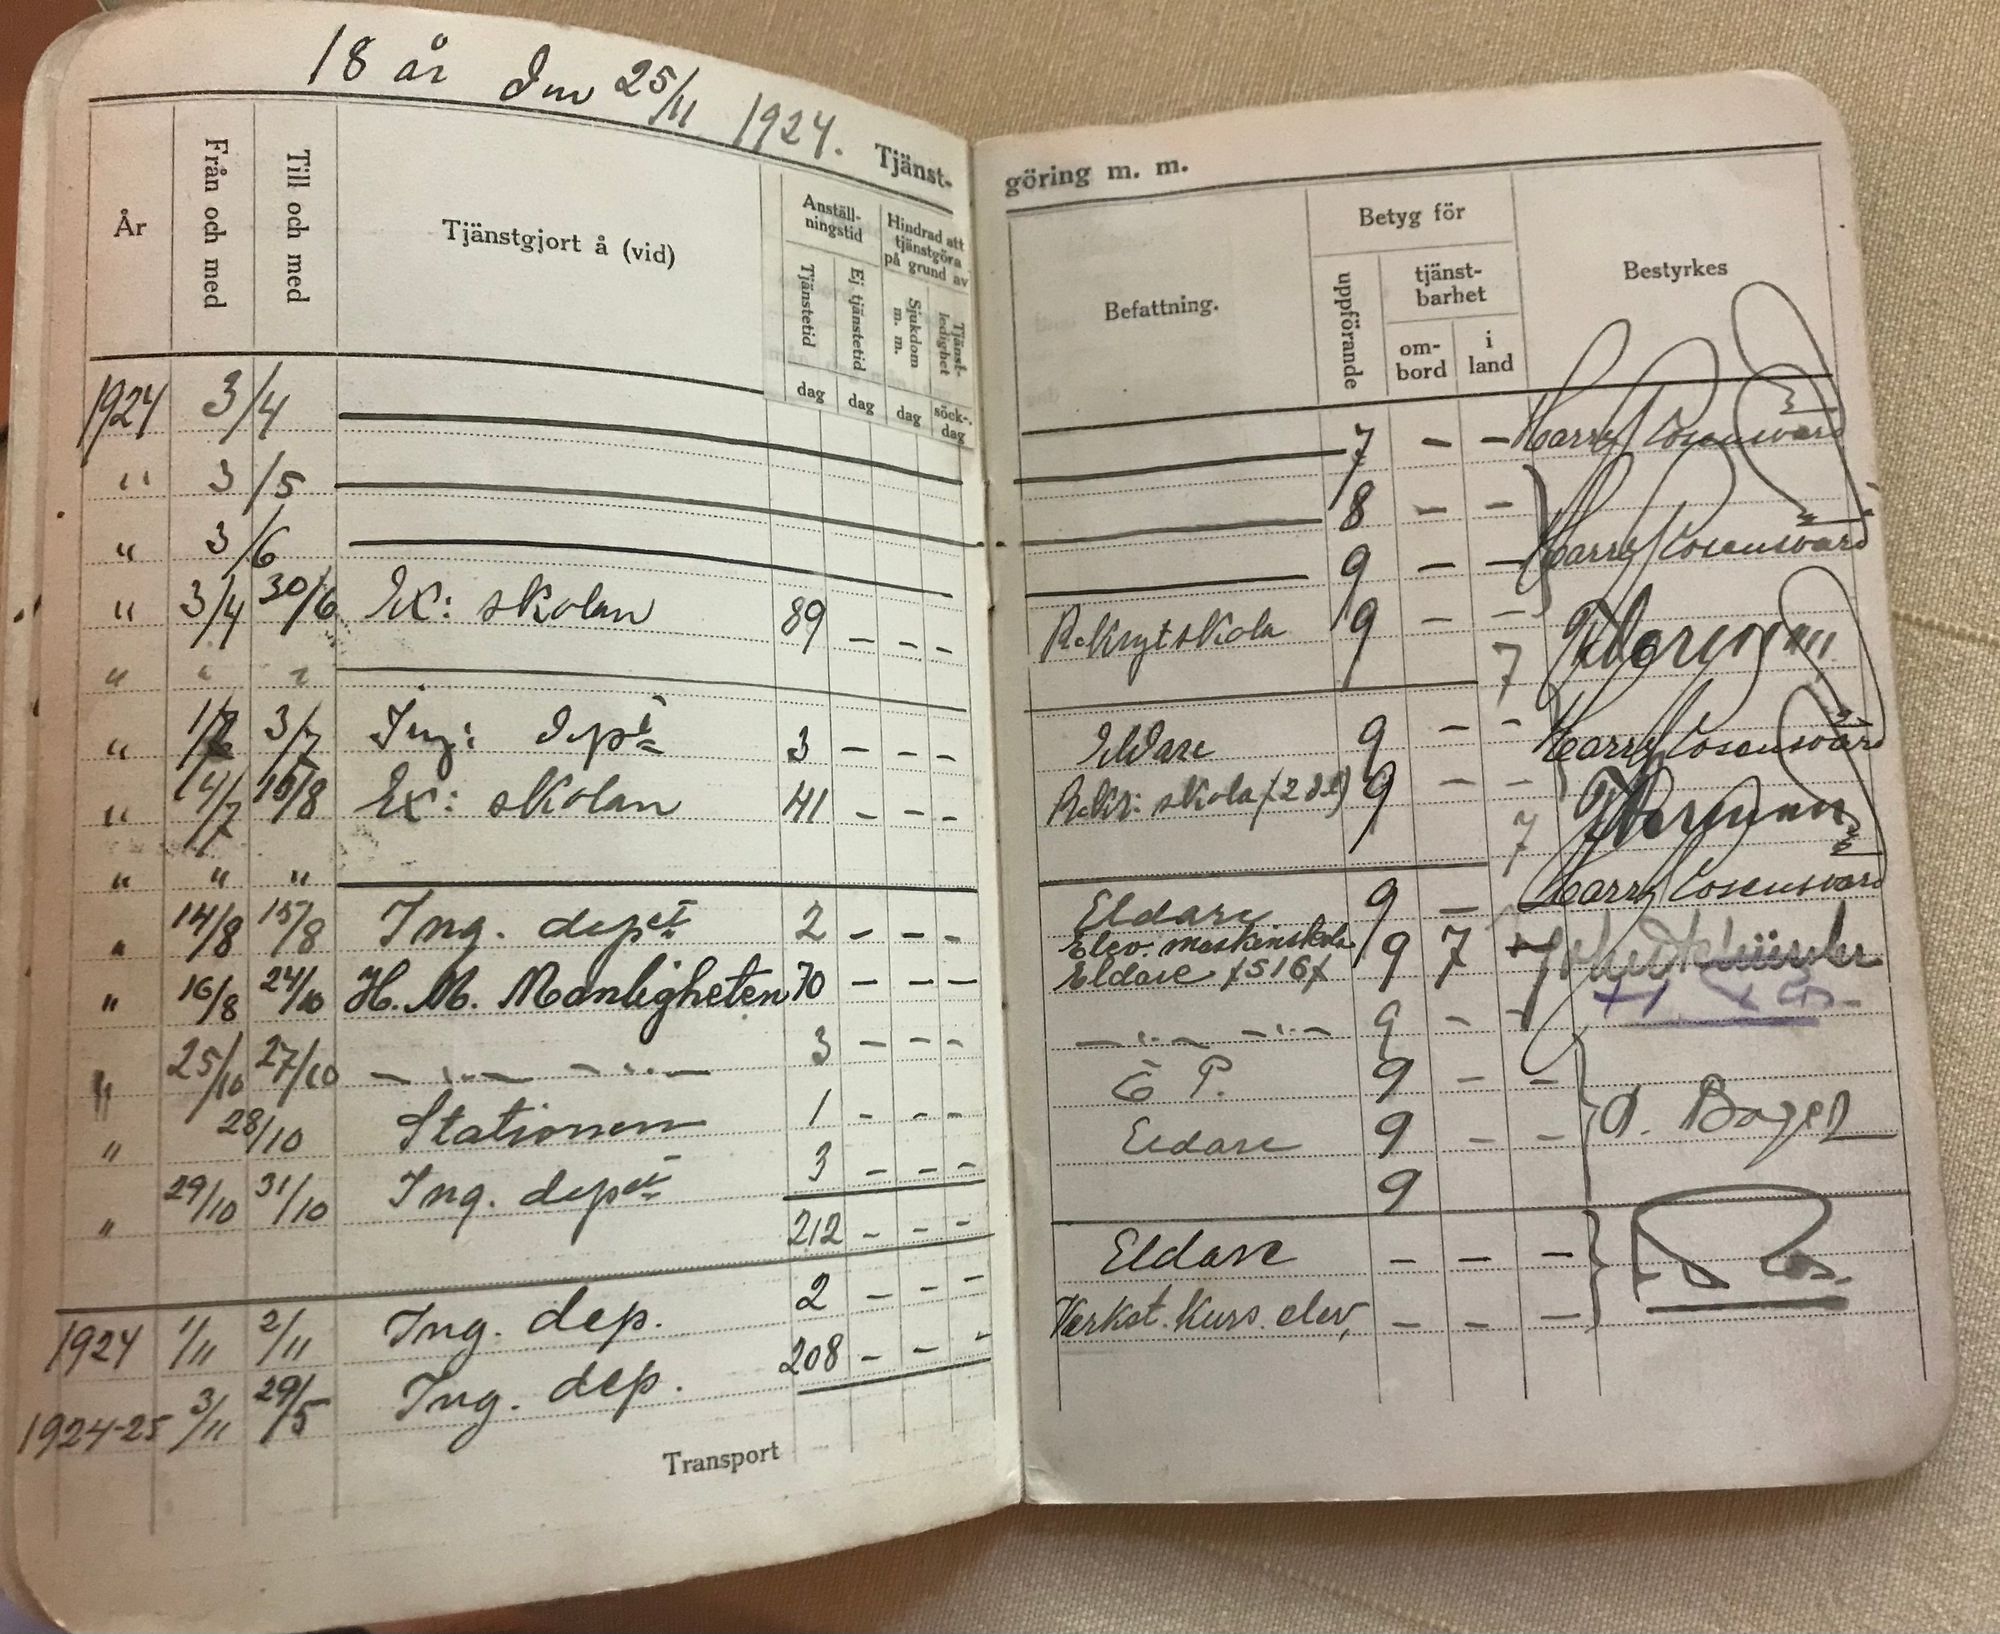 18 år den 25/11 1924.
Tjänst-
göring m. m.
År
Från och med
Till och med
Tjänstgjort å (vid)
Anställ-
ningstid
Tjänstetid
Ej tjänstetid
Hindrad att
tjänstgöra
på grund av
Sjukdom
m. m.
Tjänst-
ledighet
dag dag dag söck-
dag
Befattning.
Betyg för
uppförande
tjänst-
barhet
om-
bord
i
land
Bestyrkes
1924 3/4 7 – – Harry Rosensvärd
" 3/5 8 – –
" 3/6 9 – – Harry Rosensvärd
" 3/4 30/6 Ex: skolan 89 – – – Rekrytskola 9 – –
" " " 7
" 3/7 Ing: dept 3 – – – Eldare 9 – – Harry Rosensvärd
" 4/7 13/8 Ex: skolan 41 – – – Rekr: skola (2 del) 9 – –
7
" " "
" 14/8 15/8 Ing. depet 2 – – – Eldare 9 – Harry Rosensvärd
" 16/8 24/10 H. M. Manligheten 70 – – – Elev. maskinskola 9 7
Eldare (516)
" 25/10 27/10 – " – – " – 3 – – – – " – – " – 9 – –
" 28/10 Stationen 1 – – – E P. 9 – –
" 29/10 31/10 Ing. depet 3 – – – Eldare 9 – –
212 – – – 9
1924 1/11 2/11 Ing. dep. 2 – – – Eldare – – –
1924-25 3/11 29/5 Ing. dep. 208 – – – Verkst. kurs. elev, – – –
Transport